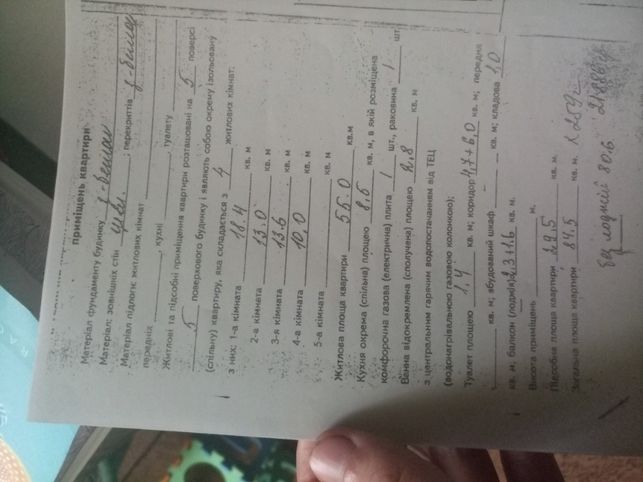 приміщень квартири
Матеріал фундаменту будинку з-бетон
Матеріал: зовнішніх стін цегл. , перекриття з-бетон
Матеріал підлоги: житлових кімнат
передніх , кухні , туалету
Житлові та підсобні приміщення квартири розташовані на 5 поверсі
5 поверхового будинку і являють собою окрему ізольовану
(спільну) квартиру, яка складається з 4 житлових кімнат:
з них: 1-а кімната 18.4 кв. м
2-а кімната 13.0 кв. м
3-я кімната 13.6 кв. м
4-а кімната 10,0 кв. м
5-а кімната кв. м
Житлова площа квартири 55.0 кв.м
Кухня окрема (спільна) площею 8,5 кв. м, в якій розміщена
комфорочна газова (електрична) плита 1 шт., раковина 1 шт.
Ванна відокремлена (сполучена) площею 2,8 кв. м
з центральним гарячим водопостачанням від ТЕЦ
(водонагрівальною газовою колонкою);
Туалет площею 1.4 кв. м; коридор 4,7+6,0 кв. м; передня
кв. м; вбудований шкаф кв. м; кладова 1,0
кв. м, балкон (лоджія) 2,3+1.6 кв. м.
Висота приміщень м,
Підсобна площа квартири 29.5
Загальна площа квартири 84.5 кв. м.
без лоджий 80.6